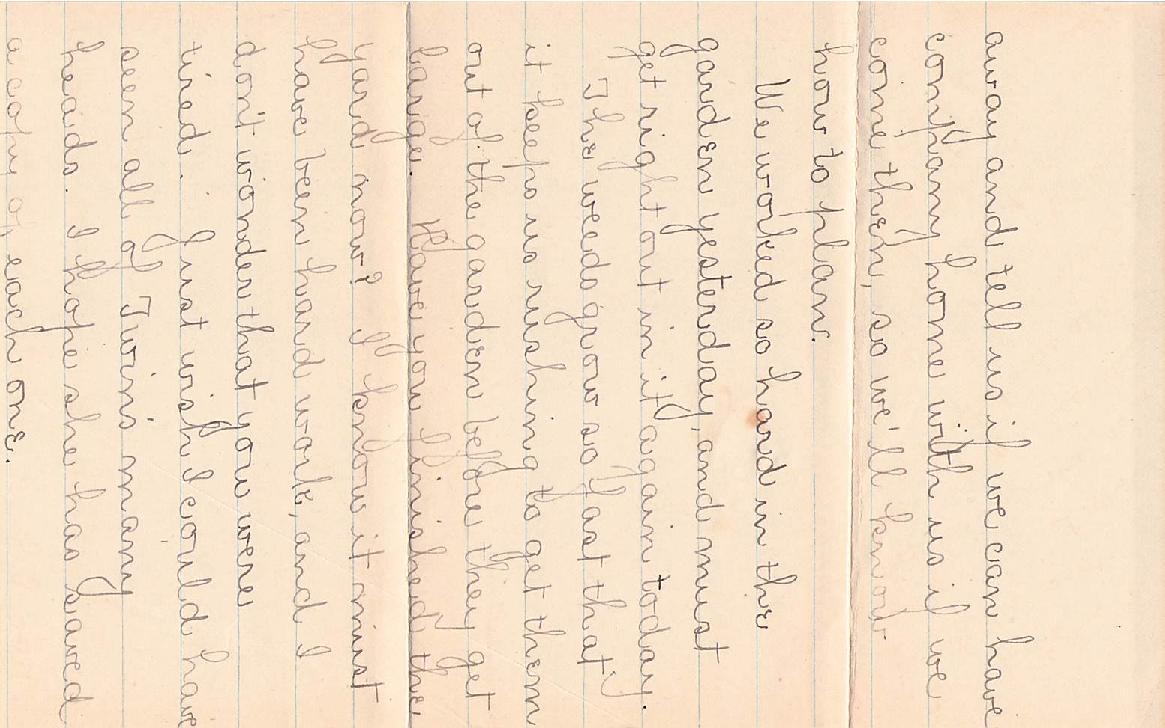 away and tell us if we can have
company home with us if we
come then, so we'll know
how to plan.
We worked so hard in the
garden yesterday, and must
get right out in it again today.
The weeds grow so fast that
it keeps us rushing to get them
out of the garden before they get
large. Have you finished the
yard now? I know it must
have been hard work, and I
don't wonder that you were
tired. Just wish I could have
seen all of Twin's many
heads. I hope she has saved
a copy of each one.